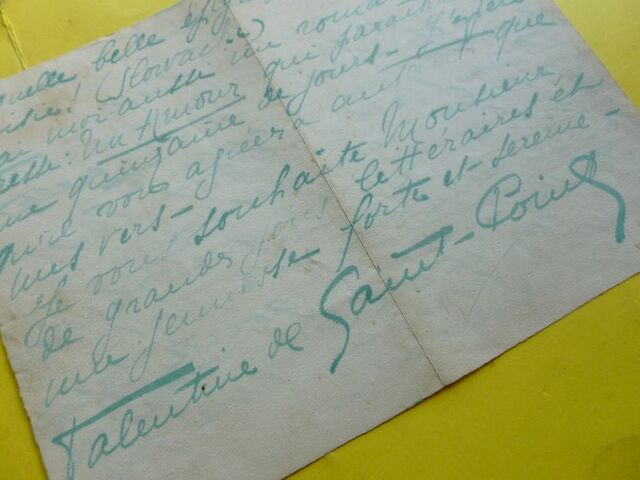 quelle belle
(Slovaïte)
ai moi aussi un roman
presse. Un Amour qui paraîtra
une quinzaine de jours – J'espère
qu'il vous agréera autant que
mes vers –
Je vous souhaite Monsieur,
de grandes joies littéraires et
une jeunesse forte et sereine –
Valentine de Saint-Point